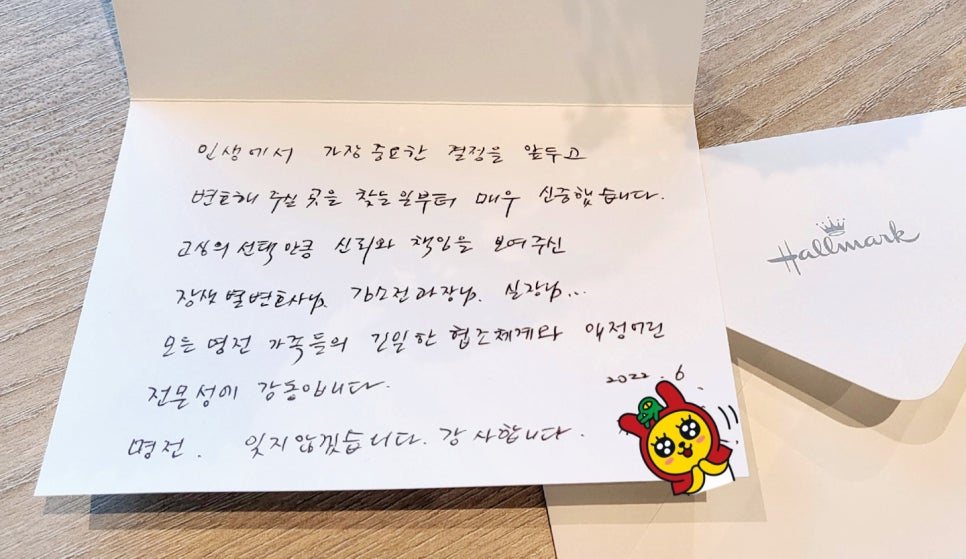 인생에서 가장 중요한 결정을 앞두고
변호해 주실 곳을 찾는 일부터 매우 신중했습니다.
고심의 선택만큼 신뢰와 책임을 보여주신
장샛별변호사님, 김소전과장님, 실장님...
모든 명전 가족들의 긴밀한 협조체계와 애정어린
전문성에 감동입니다.
2022. 6.
명전. 잊지 않겠습니다. 감사합니다.
Hallmark